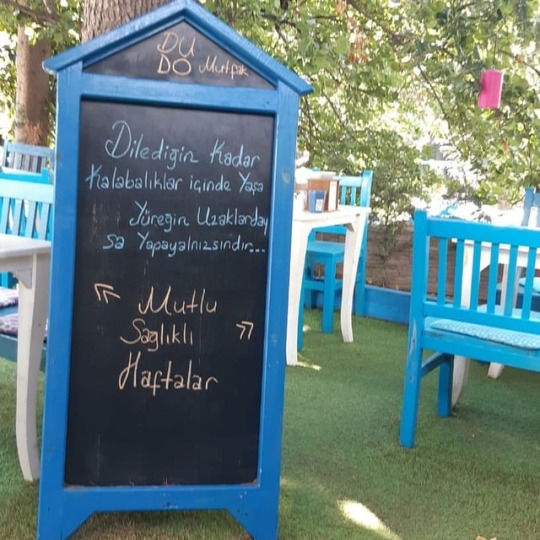 DU
DO Mutfak
Dilediğin Kadar
Kalabalıklar içinde Yaşa
Yüreğin Uzaklarday
sa Yapayalnızsındır...
Mutlu
Sağlıklı
Haftalar